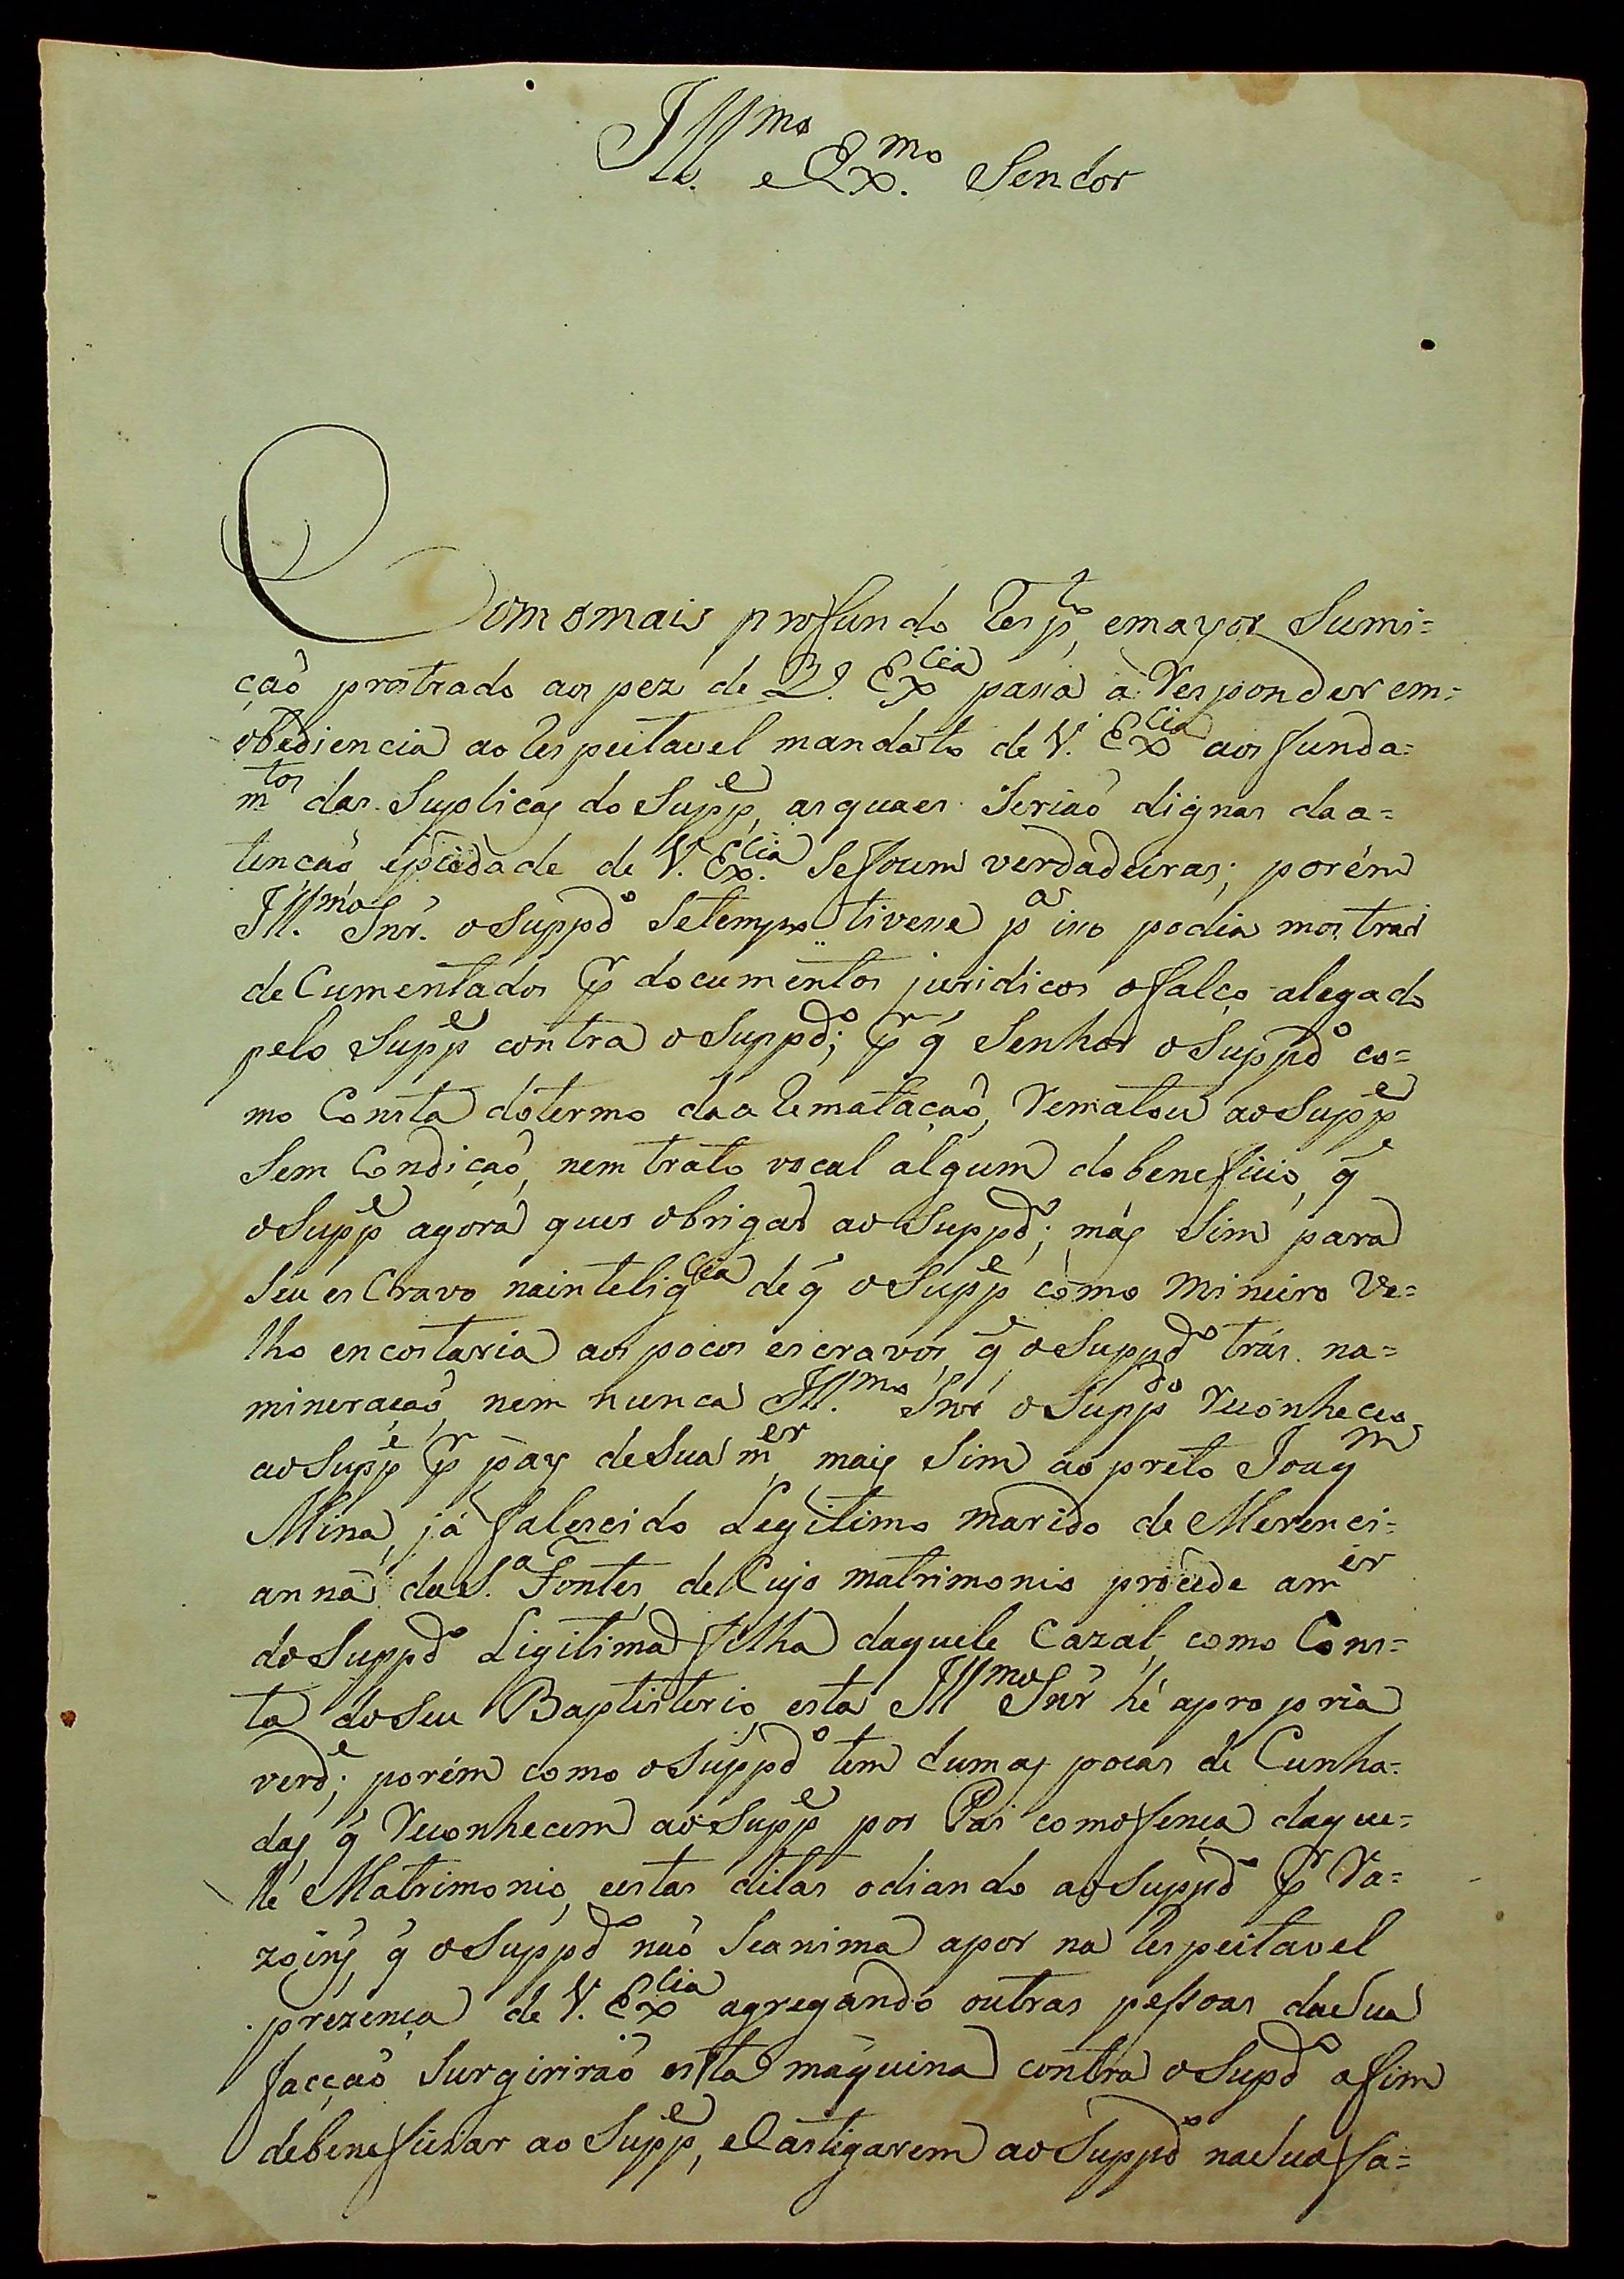 Ill.mo e Ex.mo Senhor
Com o mais profundo resp.to, e mayor Sumi=
çaõ prostrado aos pez de V. Ex.cia pasa à responder em=
obediencia ao respeitavel mandato de V. Ex.cia aos funda=
m.tos das Suplicas do Supp.e, as quaes Seriaõ dignas da a=
tencaõ e piedade de V. Ex.cia Se foscem verdadeiras; porém
Ill.mo Snr. o Supp.do Se tempo tivese p.a iso podia mostrar
de Cumentados p.r documentos juridicos o falço alegado
pelo Supp.e contra o Supp.do; p.r q.' Senhor o Supp.do co=
mo Consta do termo da a rematacaõ, rematou ao Supp.e
Sem Condiçaõ, nem trato vocal algum do beneficio, q.e
o Supp.e agora quer obrigar ao Supp.do; mas Sim para
Seu esCravo na intelig.cia de q.' o Supp.e como Mineiro Ve=
lho encostaria aos pocos escravos, q.e o Supp.do tras na=
mineracaõ, nem nunca Ill.mo Snr o Supp.do reconheceo
ao Supp.e p.r pay de Sua m.er, mais Sim ao preto Joaq.m
Mina, já falescido Legitimo marido de Merenci=
anna da S.a Fontes, de Cujo matrimonio procede a m.er
do Supp.do Ligitima filha daquele Cazal, como Cons=
ta do Seu Baptisterio, esta Ill.mo Snr hé a propria
verd.e; porém como o Supp.do tem humas pocas de Cunha=
das, q.' reconhecem ao Supp.e por Pai com ofença daque=
le Matrimonio, e estas ditas odiando ao Supp.do p.r ra=
zoins, q.' o Supp.do naõ Se anima a por na respeitavel
prezença de V. Ex.cia agregando outras pessoas da Sua
facçaõ Surgiriraõ esta maquina contra o Sup.do a fim
de beneficiar ao Supp.e, e Castigarem ao Supp.do na Sua fa=